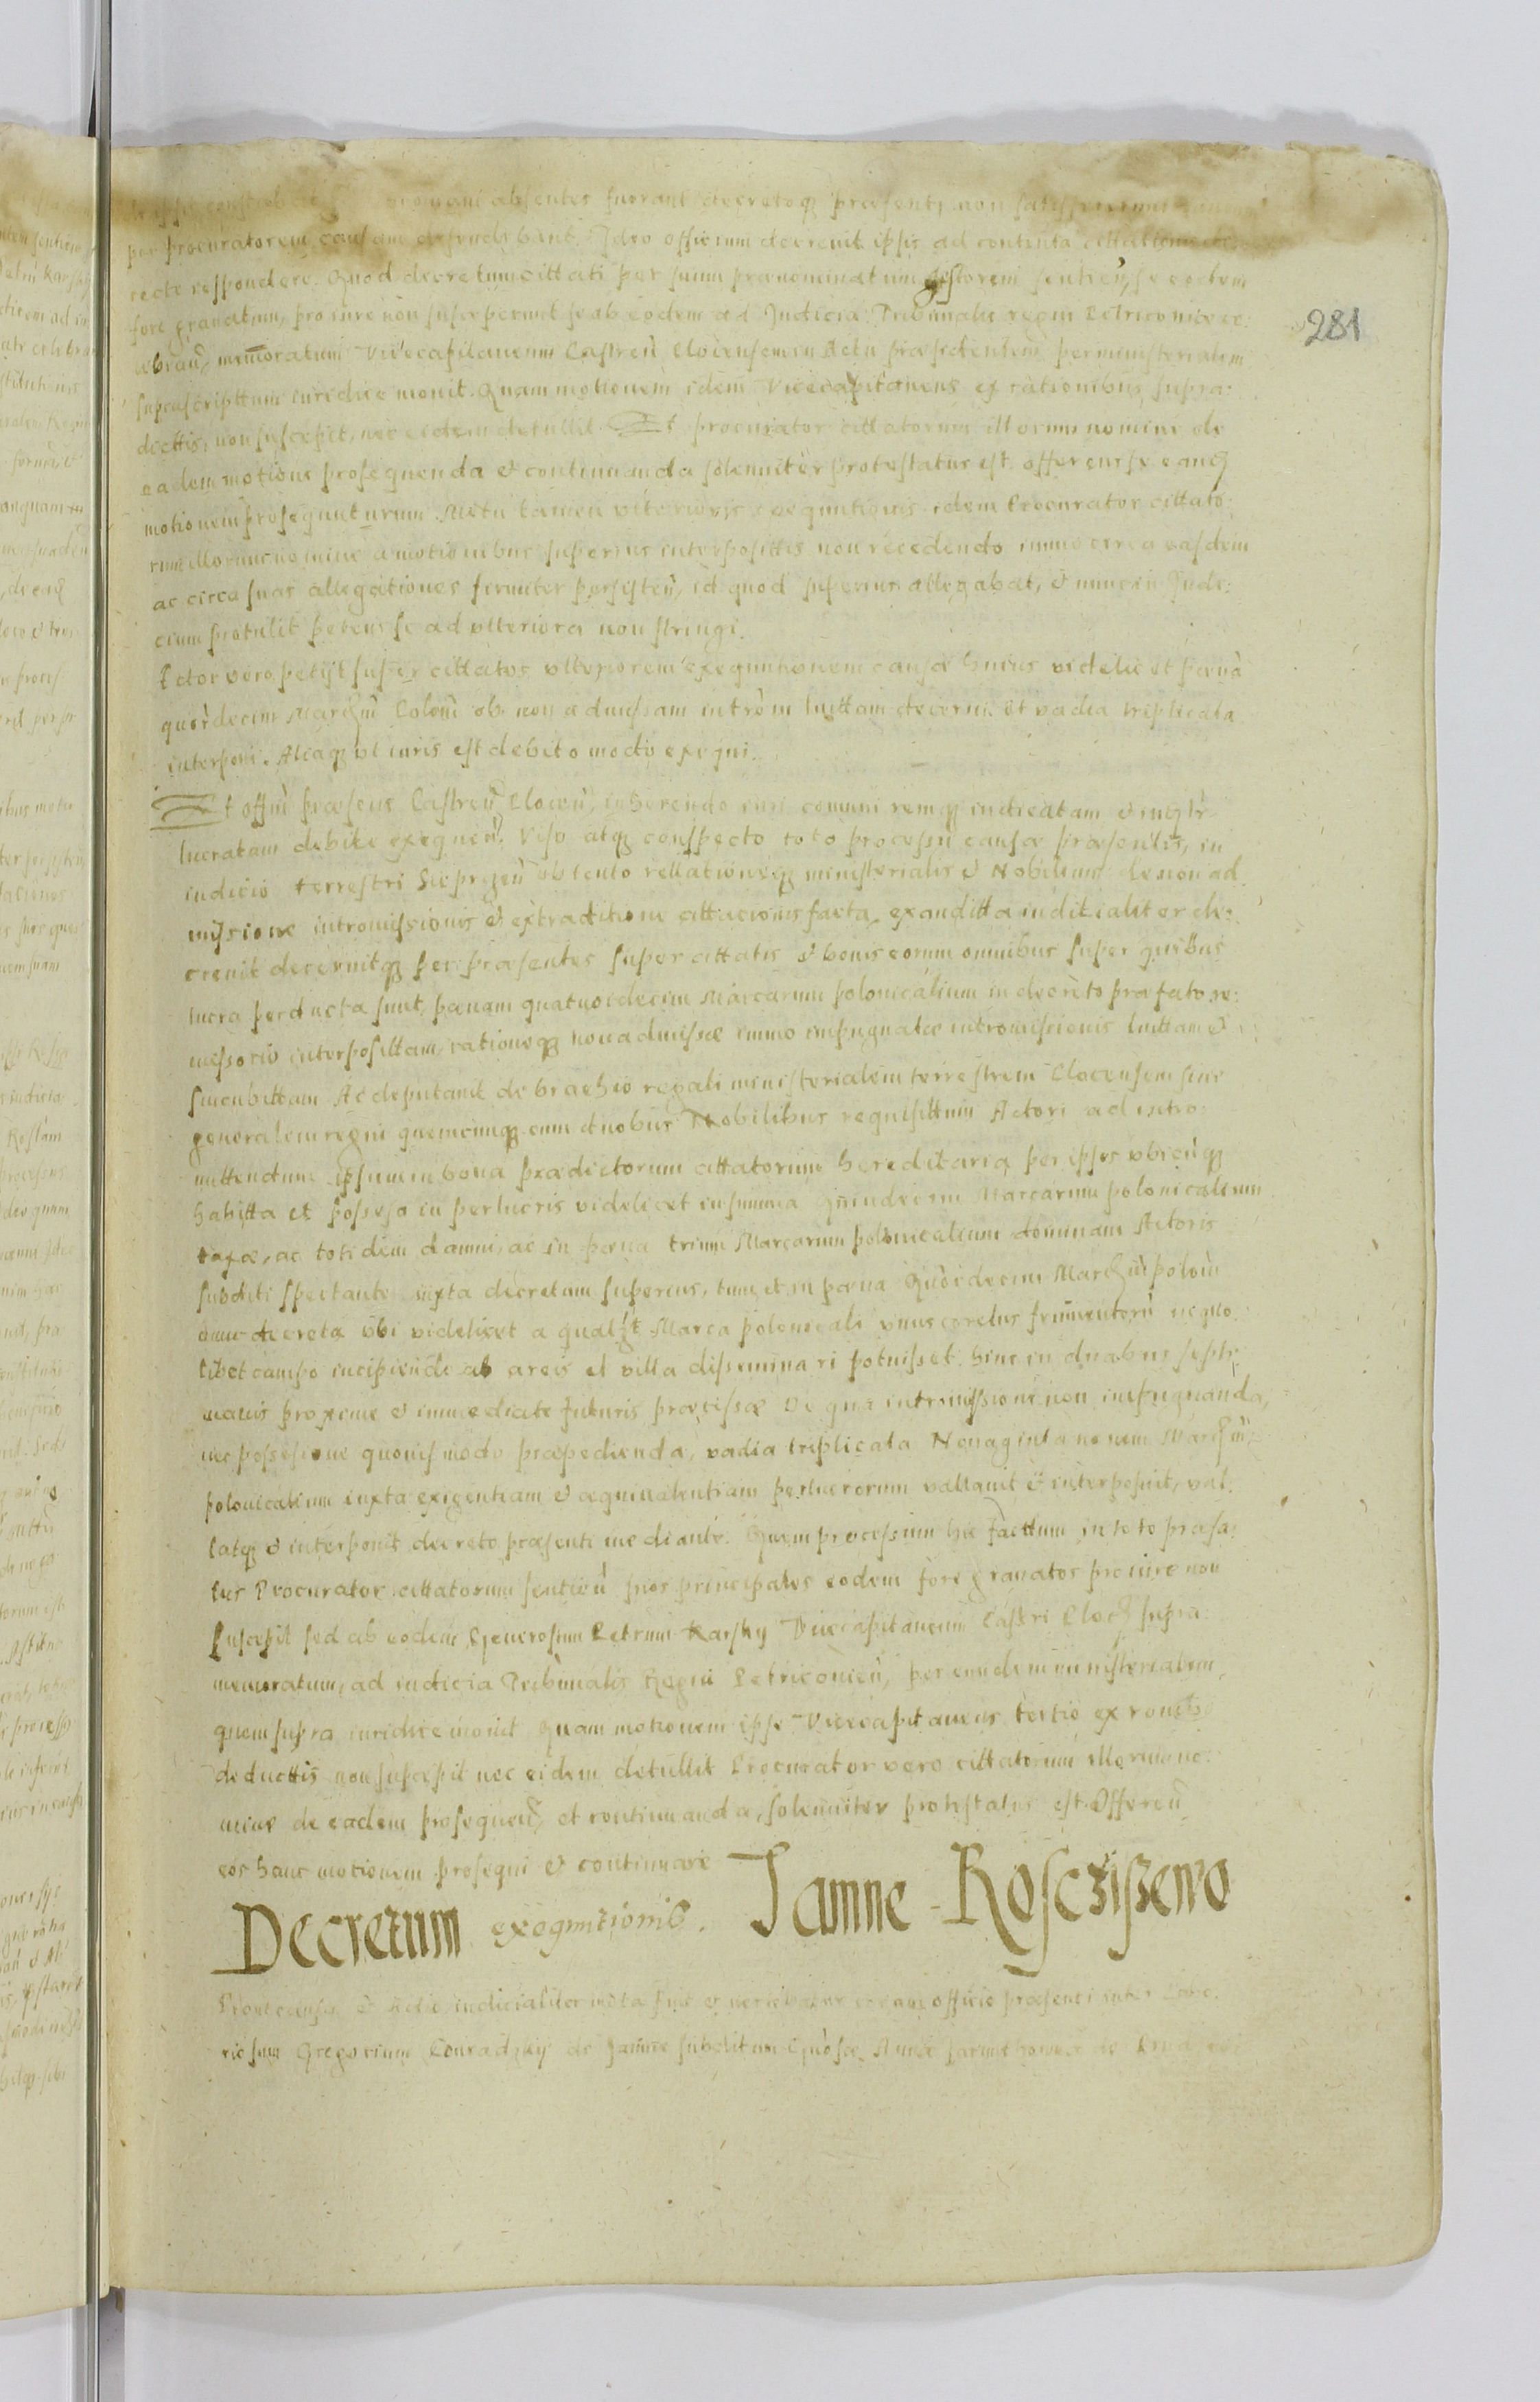 absentes fuerant decretoq præsenti non
per Procuratorem causam defendebant, Ideo officium decrevit ipsis ad contenta cittationis di
recte respondere. Quod decretum cittati per suum prænominatum sentien, se eodem
fore gravatum, pro iure non susceperunt se ab eodem ad Judicia Tribunalis regni Petricoviæ ce:
lebran, memoratum Vicecapitaneum Castren Plocensem in Actu præsidentem per ministerialem
suprascripttum iuridice monit. Quam motionem idem Vicecapitaneus ex rationibus supra:
dicttis, non suscepit, nec eidem detullit. Et procurator cittatorum illorum nomine de
eadem motione prosequenda et continuanda solenniter protestatus est. offerens se eandq
motionem prosequuturum. Metu tamen ulterioris exequutionis idem Procurator cittato:
rum illorum nomine a motionibus superius interposittis non recedendo immo circa easdem
ac circa suas allegationes firmiter persisten, id quod superius allegabat, et nunc in Judi:
cium protulit petens se ad ulteriora non stringi.
Actor vero petijt super cittatos ulteriorem exequutionem causæ huius videlicet pæna
quordecim Marchm Polom ob non admissam introm luittam decerni et vadia triplicata
interponi. Aliaq ut iuris est debito modo exequi.
Et offm præsens Castren Plocen, inherendo iuri comuni remq iudicatam et
lucratam debite exequen, viso atq conspecto toto processu causæ præsentis, in
iudicio terrestri obtento rellationeq ministerialis et Nobilium de non ad
missione intromissionis et extraditione cittacionis facta, exauditta iudicialiter de:
crevit decernitq per præsentes super cittatis et bonis eorum omnibus super quibus
lucra perducta sunt, pænam quatuordecim Marcarum polonicalium in decreto præfato re:
missorio interposittam, rationeq non admissæ immo impugnatæ intromissionis luittam et
succubittam Ac deputavit de brachio regali ministerialem terrestrem Plocensem sive
generalem regni quemcunq cum duobus Nobilibus requisittum Actori ad intro:
mittendum ipsum in bona prædictorum cittatorum hereditaria per ipsos ubicunq
habitta et possessa in perlucris videlicet in summa Quindecim Marcarum polonicalium
taxæ, ac totidem damni, ac in pæna trium Marcarum polonicalium dominam Actoris
subditi spectante iuxta decretum superius, tum et in pæna Quordecim Marchm polom
nunc decreta ubi videlicet a qualqt Marca polonicali unus coretus frumentorum in quo
libet campo incipiendo ab areis et villa disseminari potuisset, hinc in duabus septi
manis proxime et immediate futuris præcisæ De qua intromissione non impugnanda,
nec possessione quovis modo præpedienda, vadia triplicata Nonaginta novem Marchm
polonicalium iuxta exigentiam et æquivalentiam perlucrorum vallavit et interposuit, val:
latq et interponit decreto præsenti mediante. Quem processum hic facttum in toto præfa:
tus Procurator cittatorum sentien suos principales eodem fore gravatos pro iure non
suscepit sed ab eodem Generosum Petrum Karsky Vicecapitaneum Castri Ploc supra
memoratum, ad iudicia Tribunalis Regni Petricovien, per eundem ministerialem,
quem supra iuridice monit Quam motionem ipse Vicecapitaneus tertio ex
deducttis non suscepit nec eidem detullit Procurator vero cittatorum illorum no:
mine de eadem prosequen, et continuanda, solenniter protestatus est. Offeren
eos hanc motionem prosequi et continuare
Decretum exequutionis. Jamne - Rosczissewo
281
Prout causa et Actio iudicialiter mota fuit et coram officio præsenti inter Labo:
riosum Gregorium Conradzky de Jamne subditum